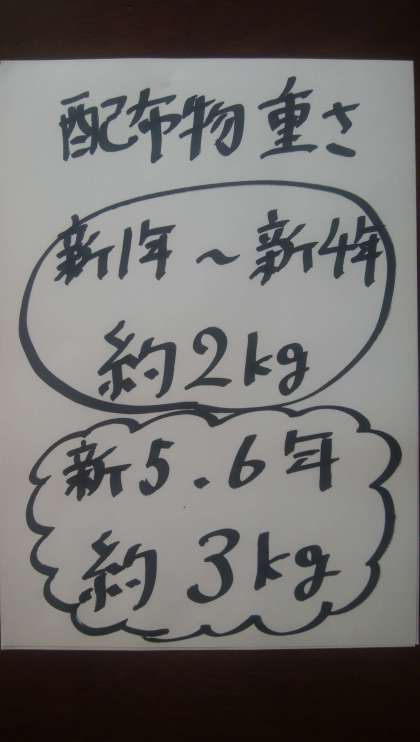 配布物重さ
新1年～新4年
約2kg
新5.6年
約3kg